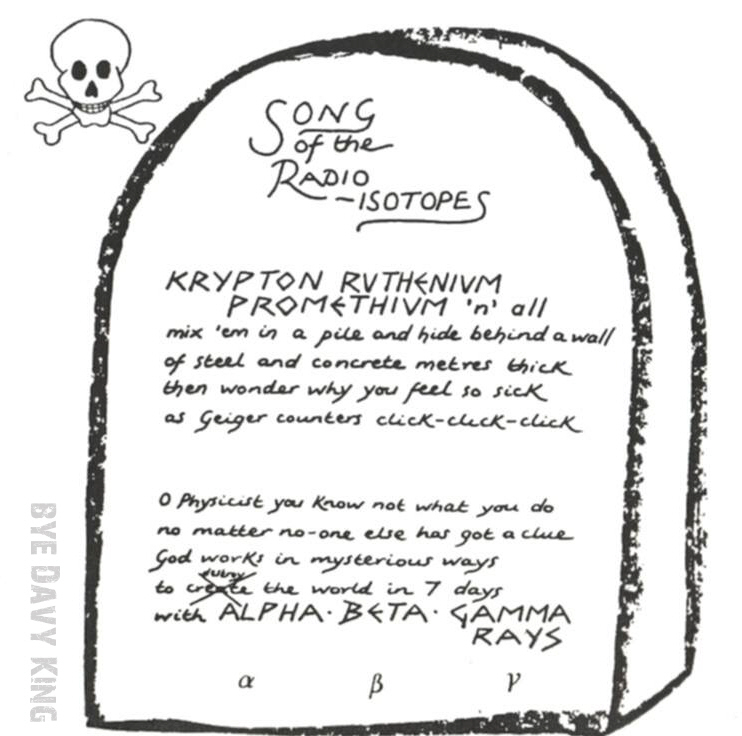 SONG
of the
RADIO
-ISOTOPES
KRYPTON RUTHENIUM
PROMETHIUM 'n' all
mix 'em in a pile and hide behind a wall
of steel and concrete metres thick
then wonder why you feel so sick
as Geiger counters click-click-click
O Physicist you know not what you do
no matter no-one else has got a clue
God works in mysterious ways
to create the world in 7 days
with ALPHA· BETA· GAMMA
RAYS
α β γ
BYE DAVY KING